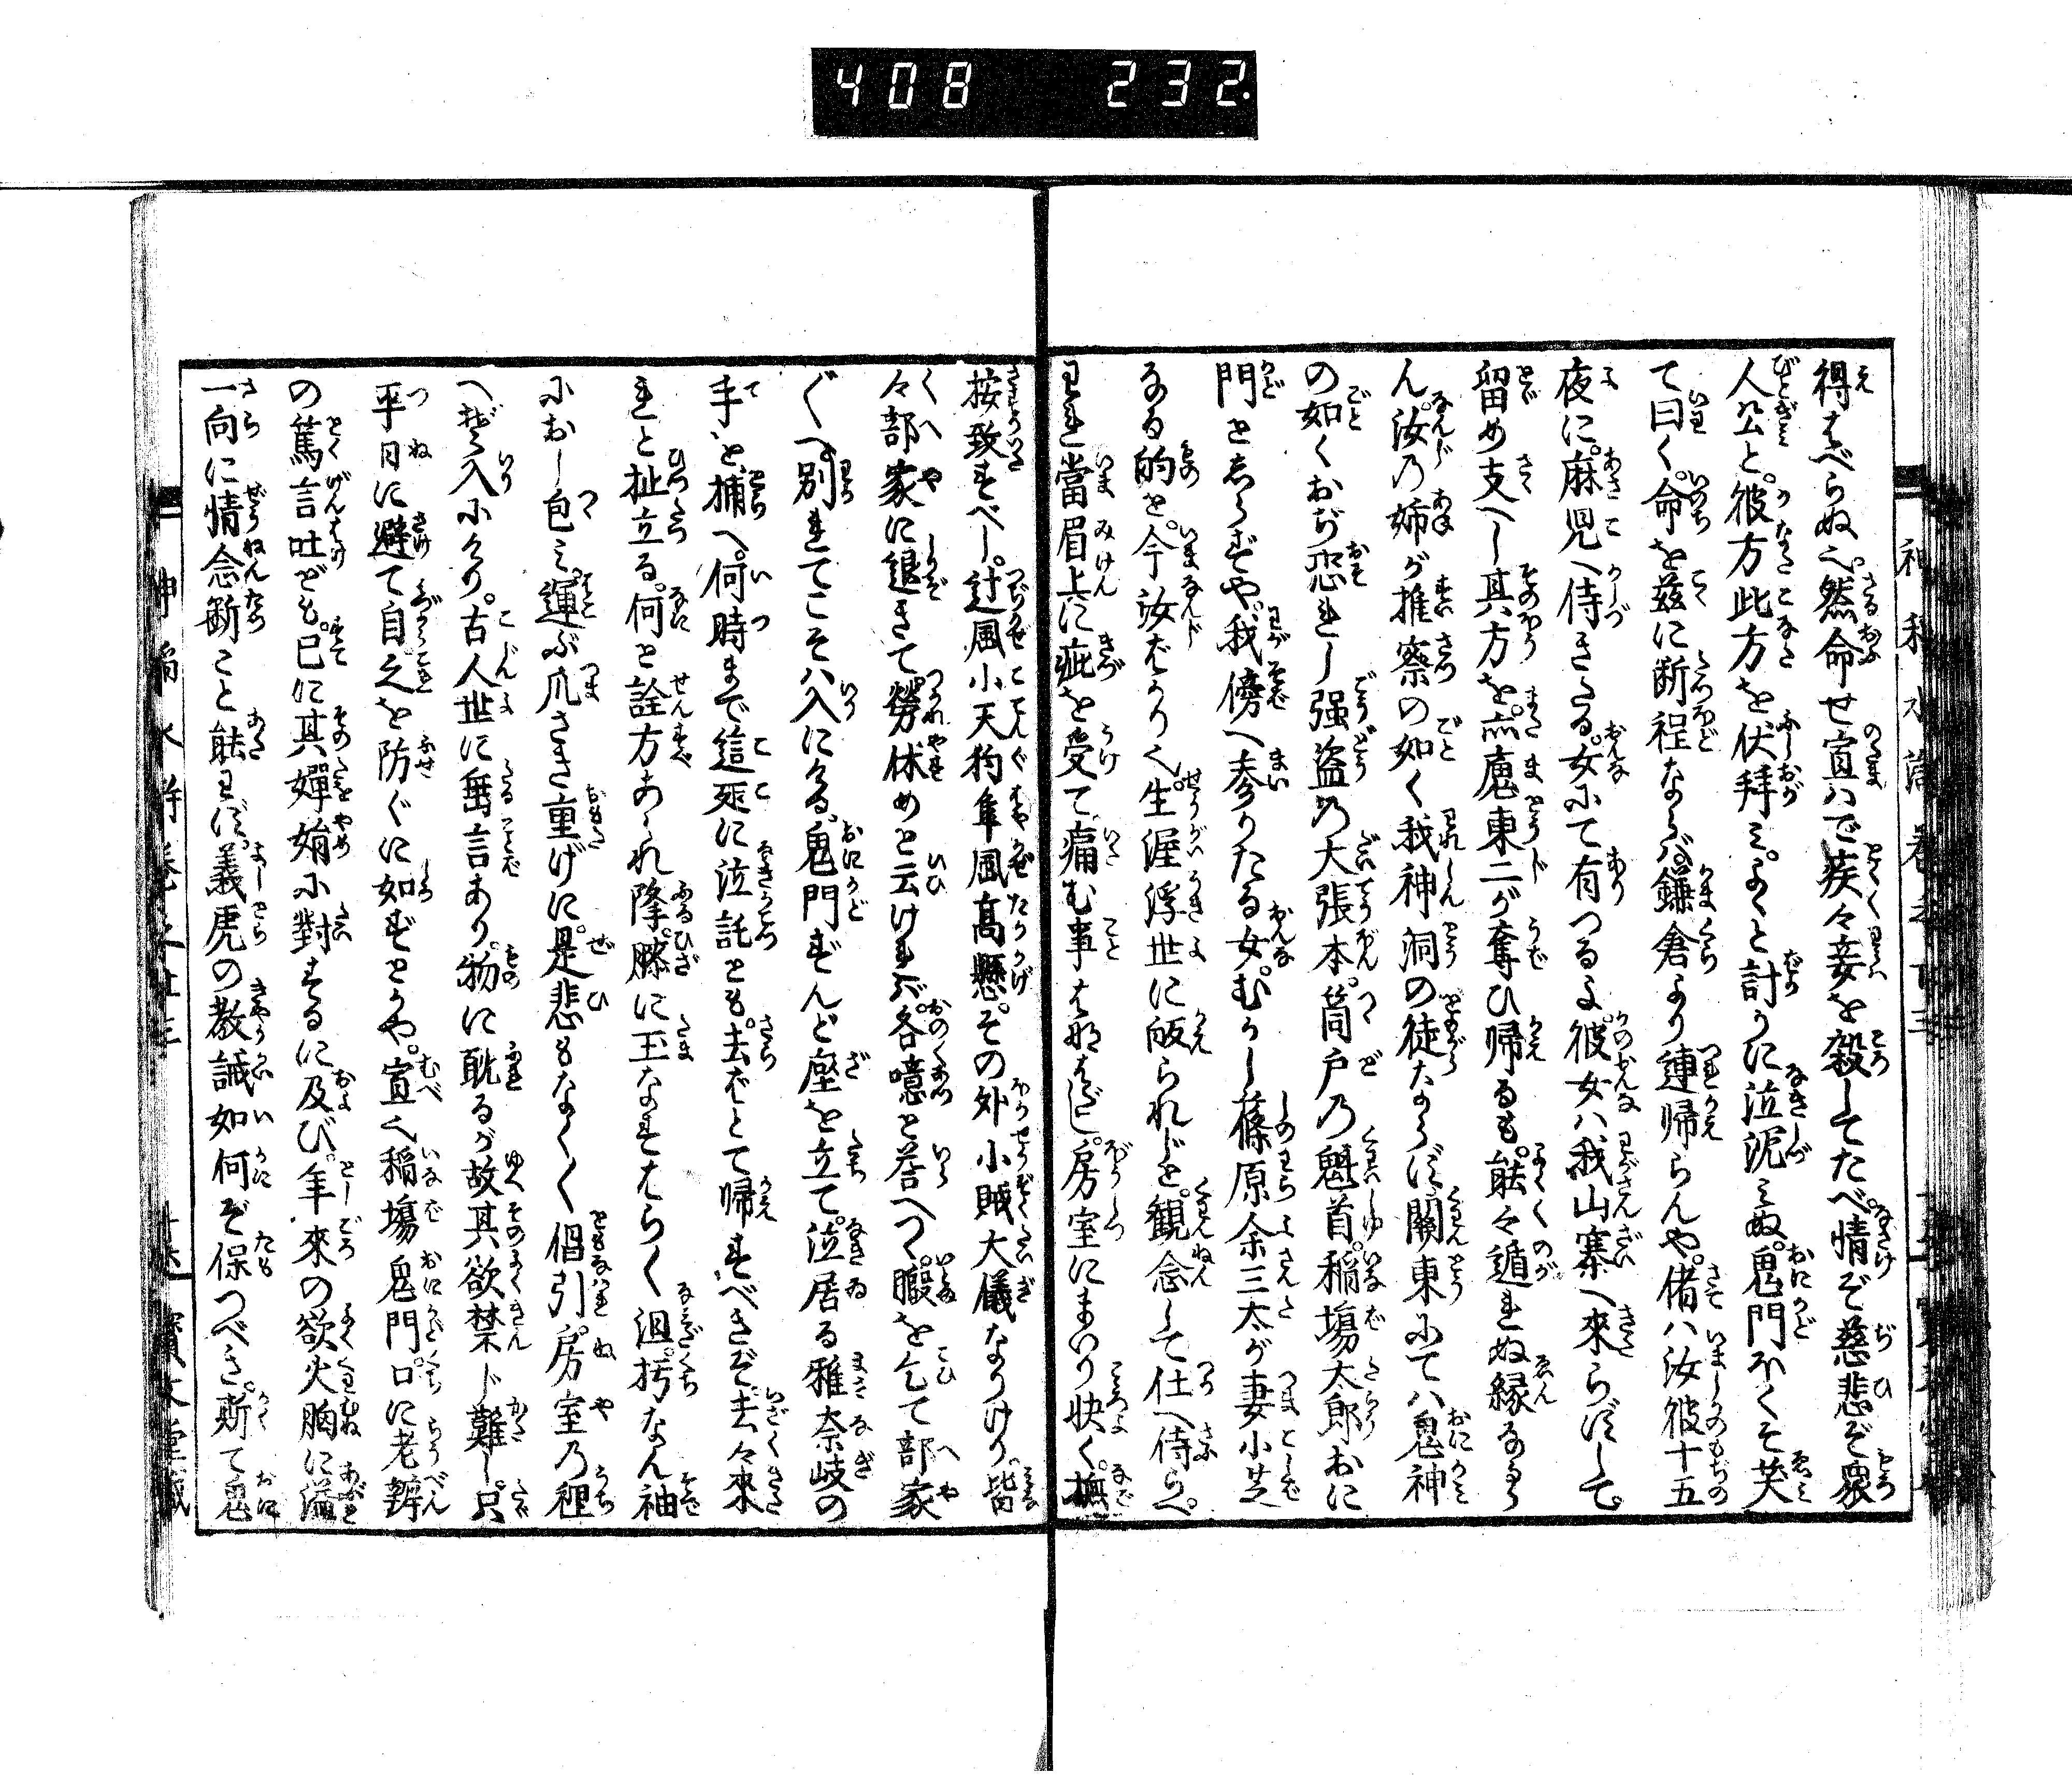 408 232.
得はべらぬへ。然命せ宣はで疾々妾を殺してたべ。情ぞ慈悲ぞ衆
人公と。彼方此方を伏拝み。よゝと計りに泣沉みぬ。鬼門ほくそ笑
て曰く。命を茲に断程ならバ鎌倉より連帰らんや。偖ハ汝彼十五
夜に。麻児へ侍きたる。女にて有つるよ。彼女ハ我山寨へ来らずして。
留め支へし其方を。点魔東二が奪ひ帰るも。能々遁れぬ縁なら
ん汝の姉が推察の如く我神洞の徒ならず。關東にてハ鬼神
の如くおぢ恐れし强盗の大張本。筒戸の魁首。稲塲太郎おに
門とゑらずや。我傍へ参りたる女。むかし篠原余三太が妻小芝
なる的を。今汝ばかりへ。生涯浮世に皈られじと。観念して仕へ侍らへ。
われ當眉上に疵を受て痛む事もはなはだし。房室にまいり快く。撫
按致すべし。辻風小天狗隼風髙懸。その外小賊大儀なりけり。皆
々部家に退きて。勞休めと云けれバ。各噫と答へつ。暇を乞て部家
ぐへ別れてこそハ入にける。鬼門ずんど座を立て。泣居る雅奈岐の
手を捕へ。何時まで這処に泣託とも。去ばとて帰すべきぞ。去々來
れと扯立る。何と詮方あられ降。膝に玉なすはらく泪。朽なん袖
におし包み。運ぶ爪さき重げに。是悲もなくく倡引。房室の裡
へぞ入にけり。古人世に垂言あり。物に耽るが故其欲禁じ難し。只
平日に避て自之を防ぐに如ずとかや。宣へ稲塲鬼門。口に老辨
の篤言吐ども。已に其嬋娟に對するに及び。年來の欲火胸に溢
一向に情念斷こと能わず。義虎の教誡如何ぞ保つべき。斯て鬼